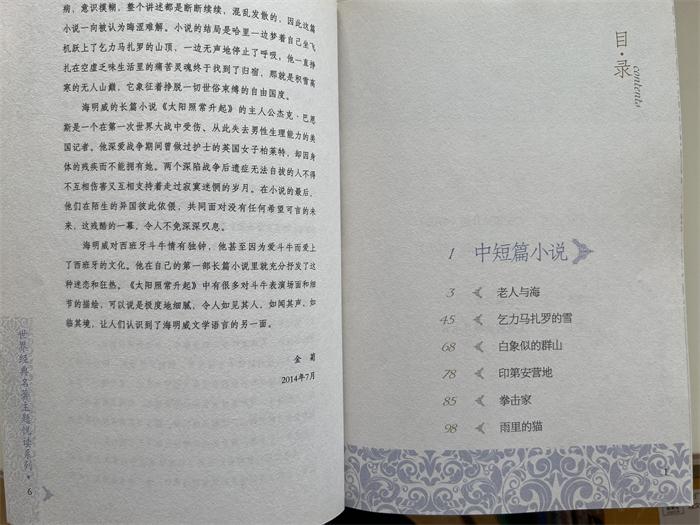 病，意识模糊，整个讲述都是断断续续，混乱发散的，因此这篇
小说一向被认为晦涩难解。小说的结局是哈里一边梦着自己坐飞
机跃上了乞力马扎罗的山顶，一边无声地停止了呼吸，他一直挣
扎在空虚乏味生活里的痛苦灵魂终于找到了归宿，那就是积雪高
寒的无人山巅，它象征着挣脱一切世俗束缚的自由国度。
海明威的长篇小说《太阳照常升起》的主人公杰克·巴恩
斯是一个在第一次世界大战中受伤、从此失去男性生理能力的美
国记者。他深爱战争期间曾做过护士的英国女子柏莱特，却因身
体的残疾而不能拥有她。两个深陷战争后遗症无法自拔的人不得
不互相伤害又互相支持着走过寂寞迷惘的岁月。在小说的最后，
他们在陌生的异国彼此依偎，共同面对没有任何希望可言的未
来，这残酷的一幕，令人不免深深叹息。
海明威对西班牙斗牛情有独钟，他甚至因为爱斗牛而爱上
了西班牙的文化。他在自己的第一部长篇小说里就充分抒发了这
种迷恋和狂热。《太阳照常升起》中有很多对斗牛表演场面和细
节的描绘，可以说是极度地细腻，令人如见其人，如闻其声，如
临其境，让人们认识到了海明威文学语言的另一面。
金菊
2014年7月
世界经典名著主题悦读系列·
6
目·录
contents
1 中短篇小说
3 老人与海
45 乞力马扎罗的雪
68 白象似的群山
78 印第安营地
85 拳击家
98 雨里的猫
1